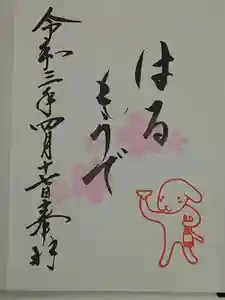 はる
もうで
令和三年四月十七日奉拝